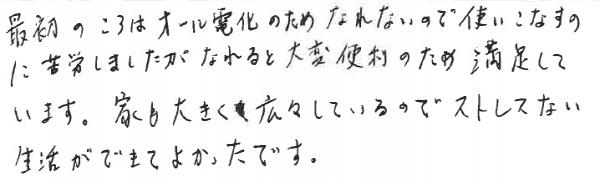 最初のころはオール電化のためなれないので使いこなすの
に苦労しましたがなれると大変便利のため満足して
います。家も大きく広々しているのでストレスない
生活ができてよかったです。